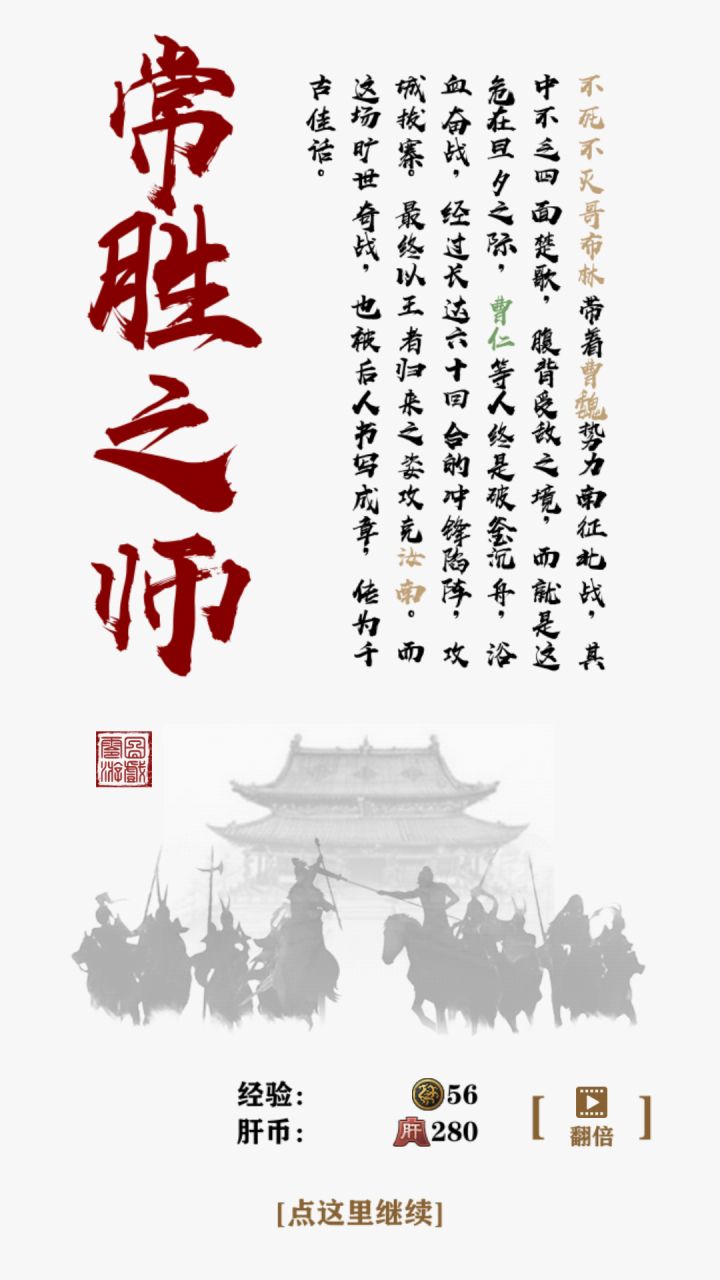 常胜之师
不死不灭哥布林带着曹魏势力南征北战，其
中不乏四面楚歌，腹背受敌之境，而就是这
危在旦夕之际，曹仁等人终是破釜沉舟，浴
血奋战，经过长达六十回合的冲锋陷阵，攻
城拔寨。最终以王者归来之姿攻克汝南。而
这场旷世奇战，也被后人书写成章，传为千
古佳话。
经验：56
肝币：肝280
[翻倍]
[点这里继续]